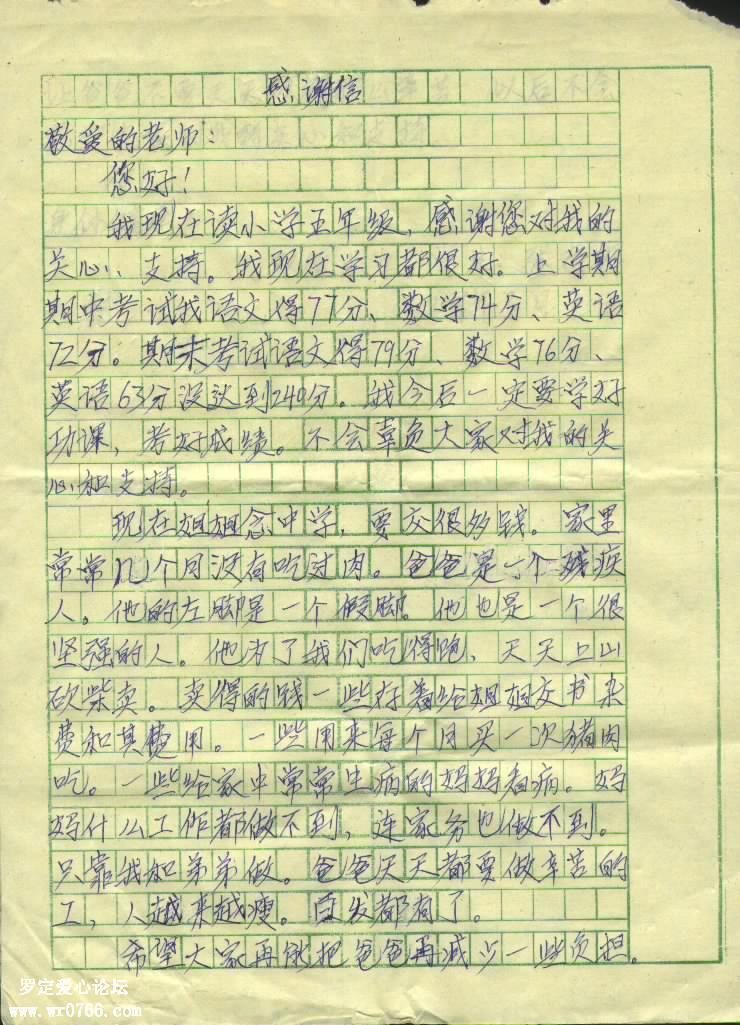 感谢信
敬爱的老师:
您好!
我现在读小学五年级,感谢您对我的
关心、支持。我现在学习都很好。上学期
期中考试我语文得77分、数学74分、英语
72分。期末考试语文得79分、数学76分、
英语63分没达到240分。我今后一定要学好
功课,考好成绩。不会辜负大家对我的关
心和支持。
现在姐姐念中学,要交很多钱。家里
常常几个月没有吃过肉。爸爸是一个残疾
人。他的左脚是一个假脚。他也是一个很
坚强的人。他为了我们吃得跑、天天上山
砍柴卖。卖得的钱一些存着给姐姐交书杂
费和其费用。一些用来每个月买一次猪肉
吃。一些给家中常常生病的妈妈看病。妈
妈什么工作都做不到,连家务也做不到。
只靠我和弟弟做。爸爸天天都要做辛苦的
工,人越来越瘦。白发都有了。
希望大家再能把爸爸再减少一些负担。
罗定爱心论坛
www.wr0766.com